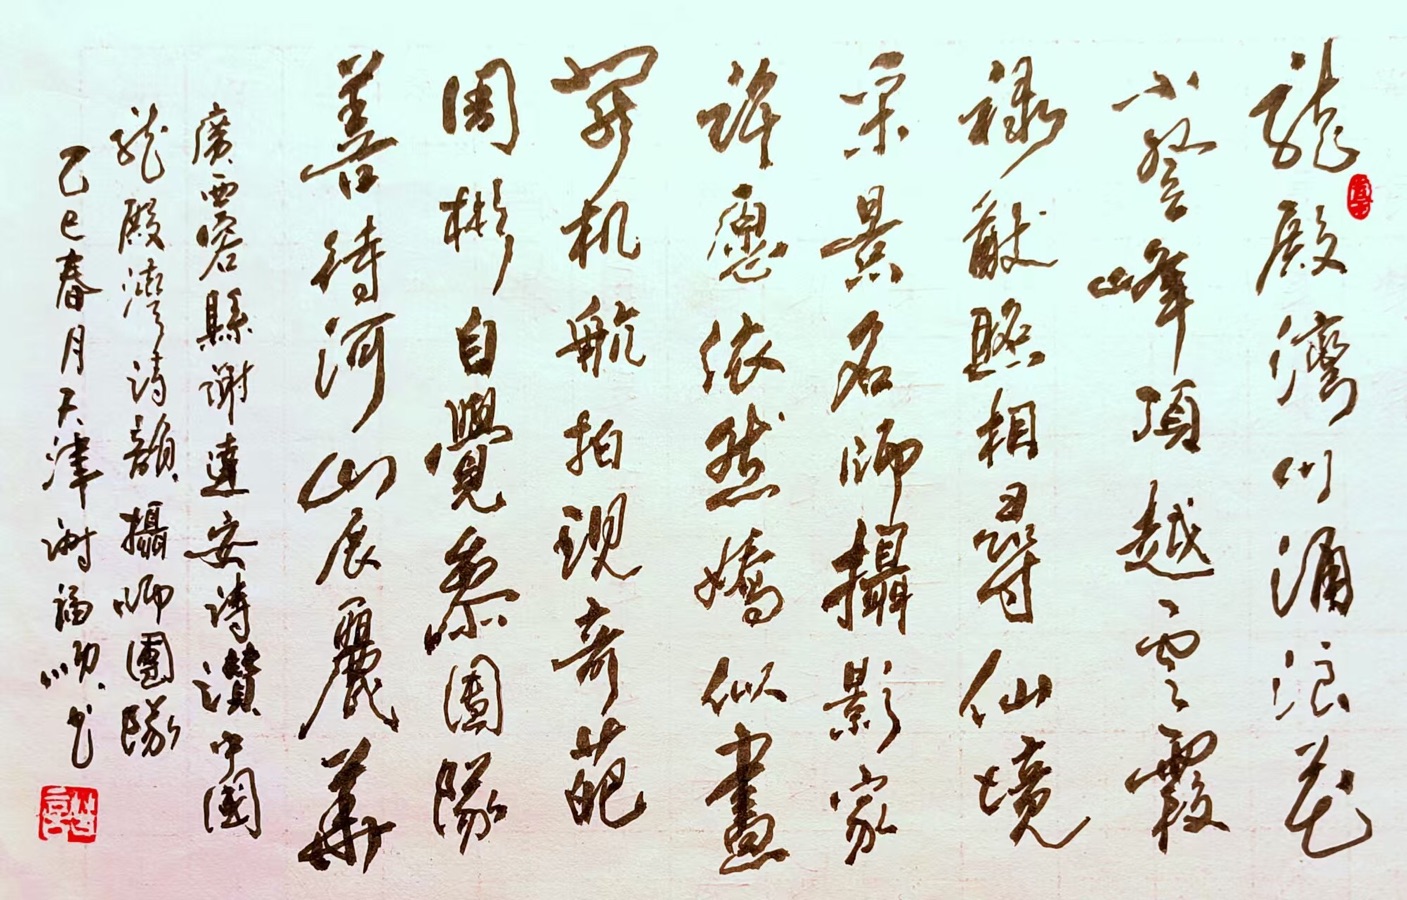 龍殿灣川涌浪花
小登峰頂越雲霞
祿猷照相尋仙境
采景名師攝影家
許愿依然嬌似畫
飛机航拍現奇葩
周彬自覺參團隊
善待河山展麗華
廣西容縣謝達安詩讚中國
龍殿灣詩韻攝師團隊
乙巳春月天津謝福順書